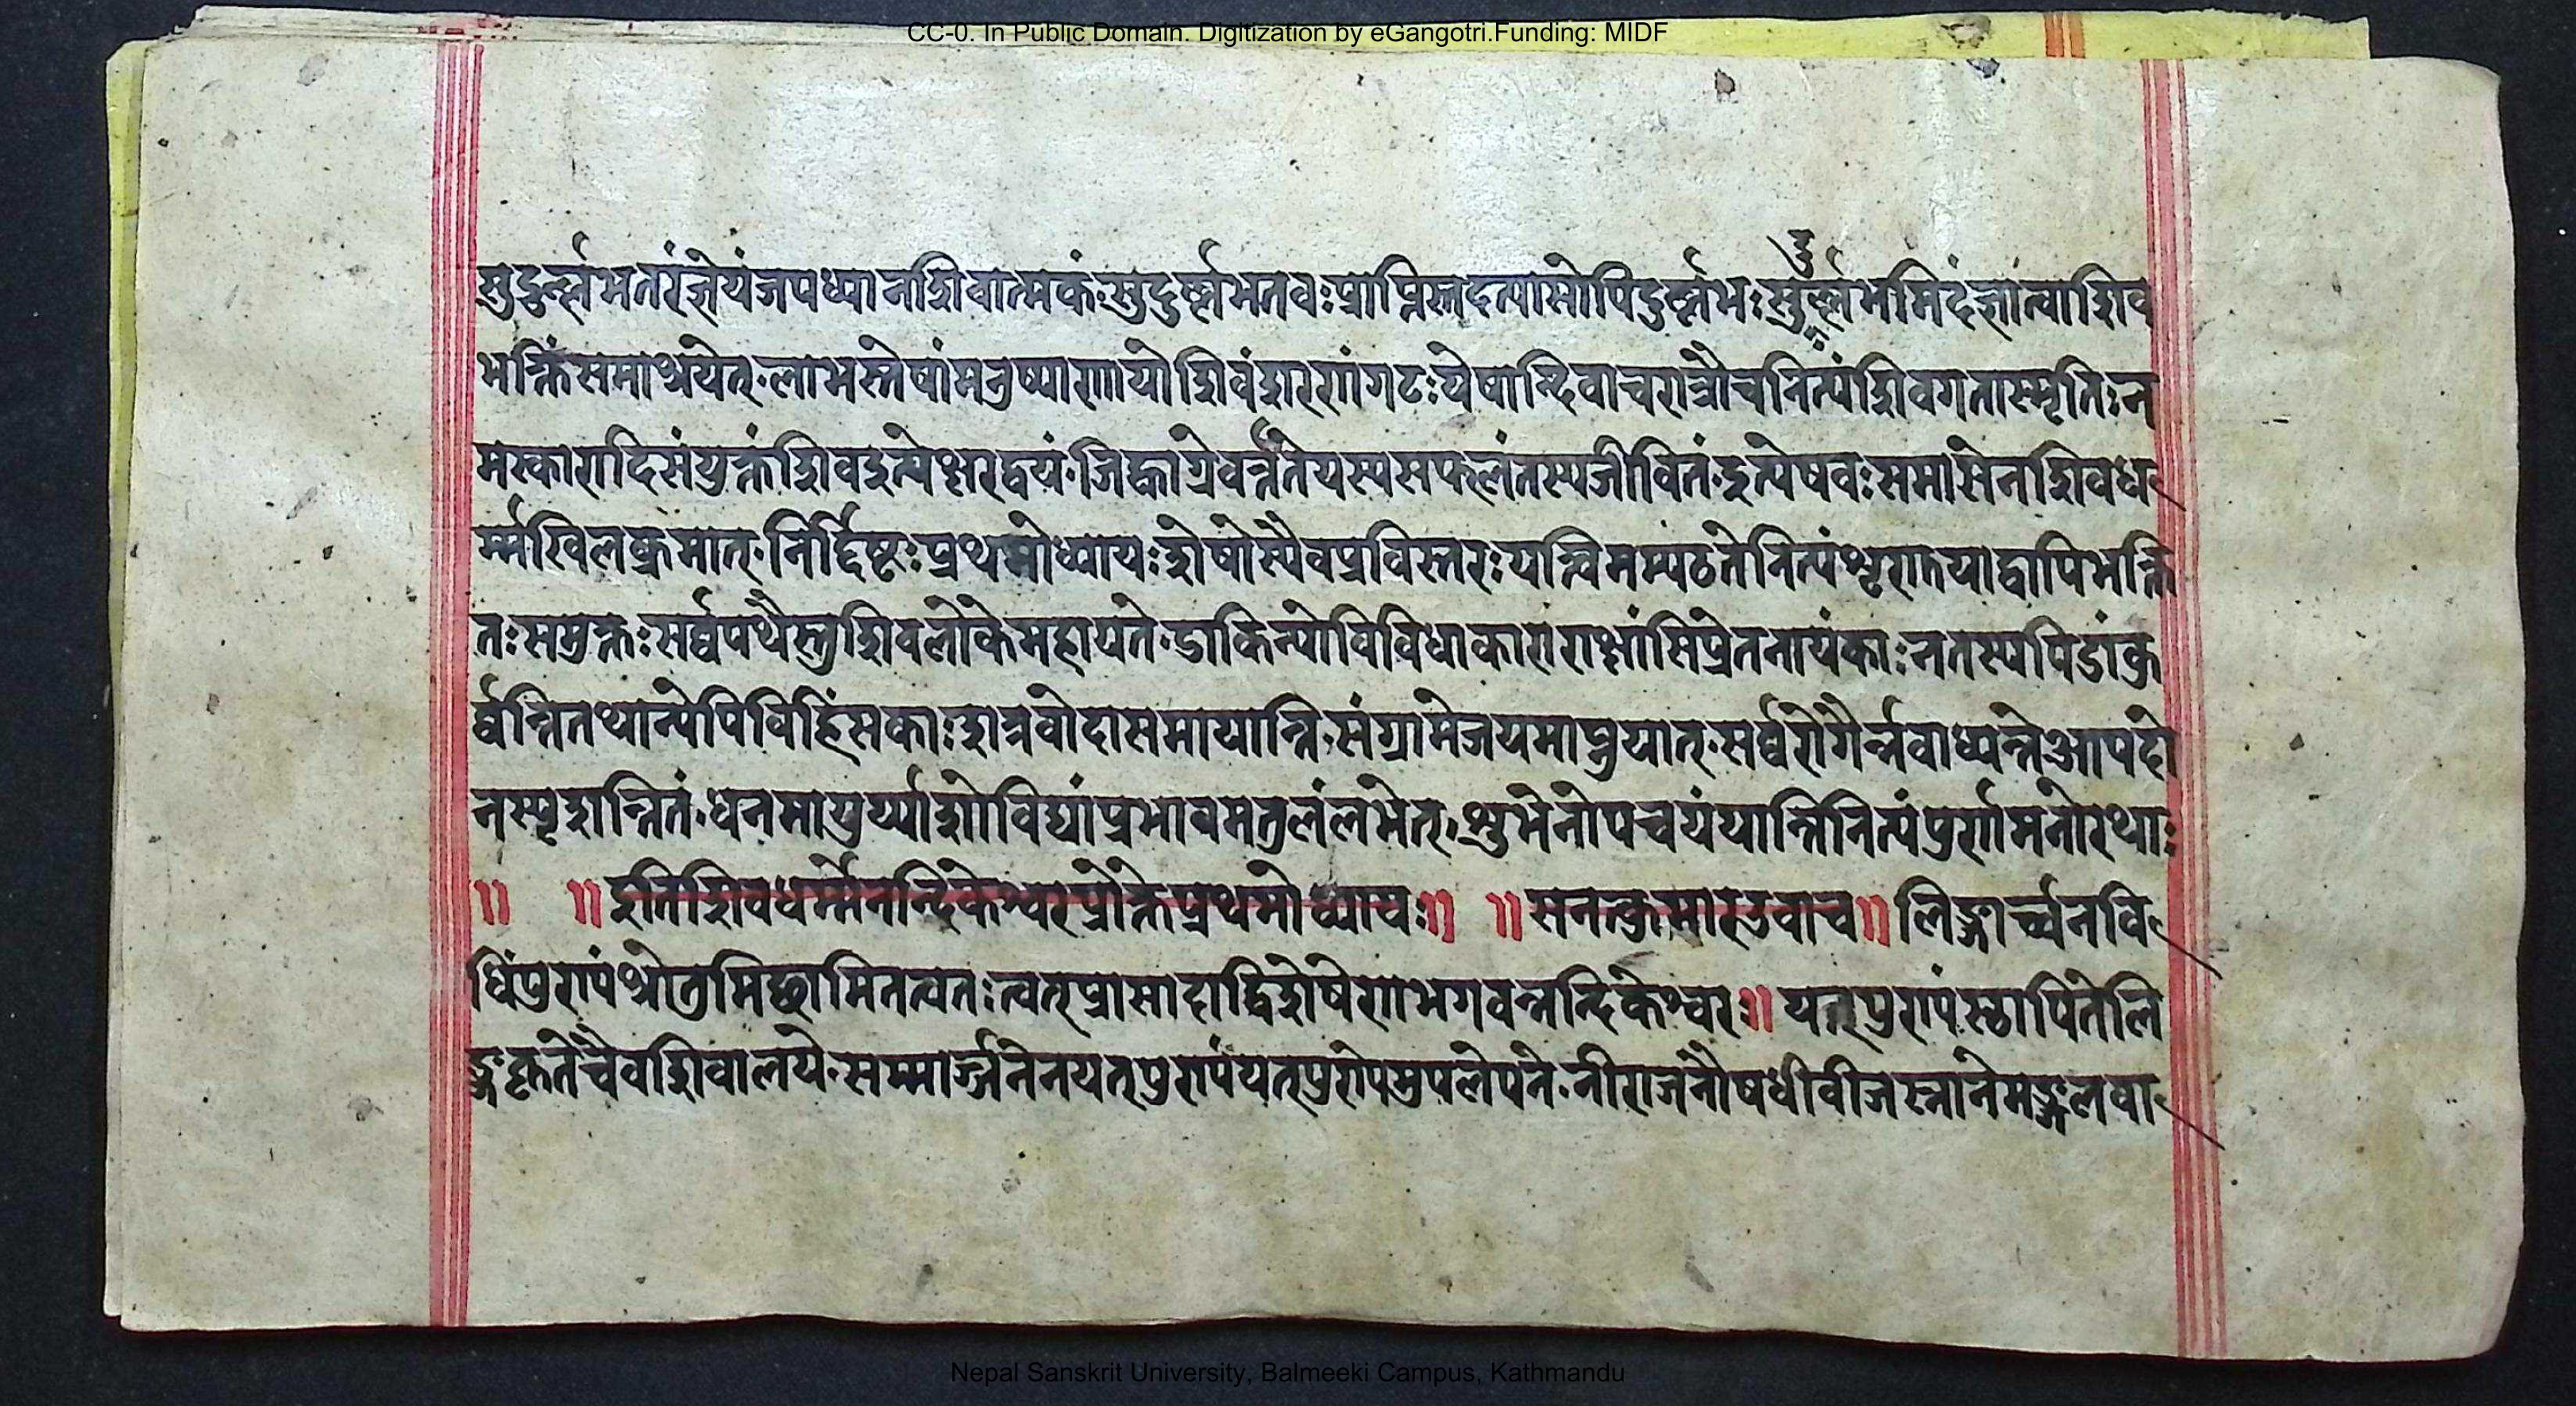 CC-0. In Public Domain. Digitization by eGangotri.Funding: MIDF
सुदुर्ल्लभतरंज्ञेयंजपध्यानशिवात्मकं॰सुदुर्ल्लभतवःप्राप्तिस्तदत्यासोपिदुर्ल्लभःसुदुर्ल्लभमिदंज्ञात्वाशिव
भक्तिंसमाश्रयेत्॰लाभस्तेषांमनुष्याणायोशिवंशरणंगटःयेषान्दिवाचरात्रौचनित्यंशिवगतास्मृतिःन
मस्कारादिसंयुक्तंशिवइत्यक्षरद्वयं॰जिह्वाग्रेवर्त्ततेयस्यसफलंतस्यजीवितं॰इत्येषवःसमासेनशिवध
र्म्मखिलक्रमात्॰निर्द्दिष्टःप्रथमोध्यायःशेषोस्यैवप्रविस्तरःयत्विमम्पठतेनित्यंशृणुयाद्वापिभक्ति
तःसमुक्तःसर्व्वपथैस्तुशिवलोकेमहीयते॰डाकिन्योविविधाकाराराक्षांसिप्रेतनायंकाःनतस्यपिडांकु
र्व्वन्तितथान्येपिविहिंसकाःशत्रवोदासमायान्ति॰संग्रामेजयमाप्नुयात्॰सर्व्वरोगैर्न्नवाध्यन्तेआपदो
नस्पृशन्तितं॰धनमायुर्य्यशोविद्यांप्रभावमतुलंलभेत्॰शुभेनोपचयंयान्तिनित्यंपुर्णामनोरथाः
॥ ॥इतिशिवधर्म्मेनन्दिकेश्वरप्रोक्तेप्रथमोध्यायः॥ ॥सनत्कुमारउवाच॥लिङ्गार्च्चनवि
धिंपुण्यंश्रोतुमिछामितत्वतःत्वत्प्रासादाद्विशेषेणभगवन्नन्दिकेश्वर॥यत्पुण्यंस्थापितेलि
ङ्गकृतेचैवशिवालये॰सम्मार्ज्जनेनयत्पुण्यंयत्पुण्येमुपलेपने॰नीराजनौषधीवीजस्नानेमङ्गलवा
Nepal Sanskrit University, Balmeeki Campus, Kathmandu